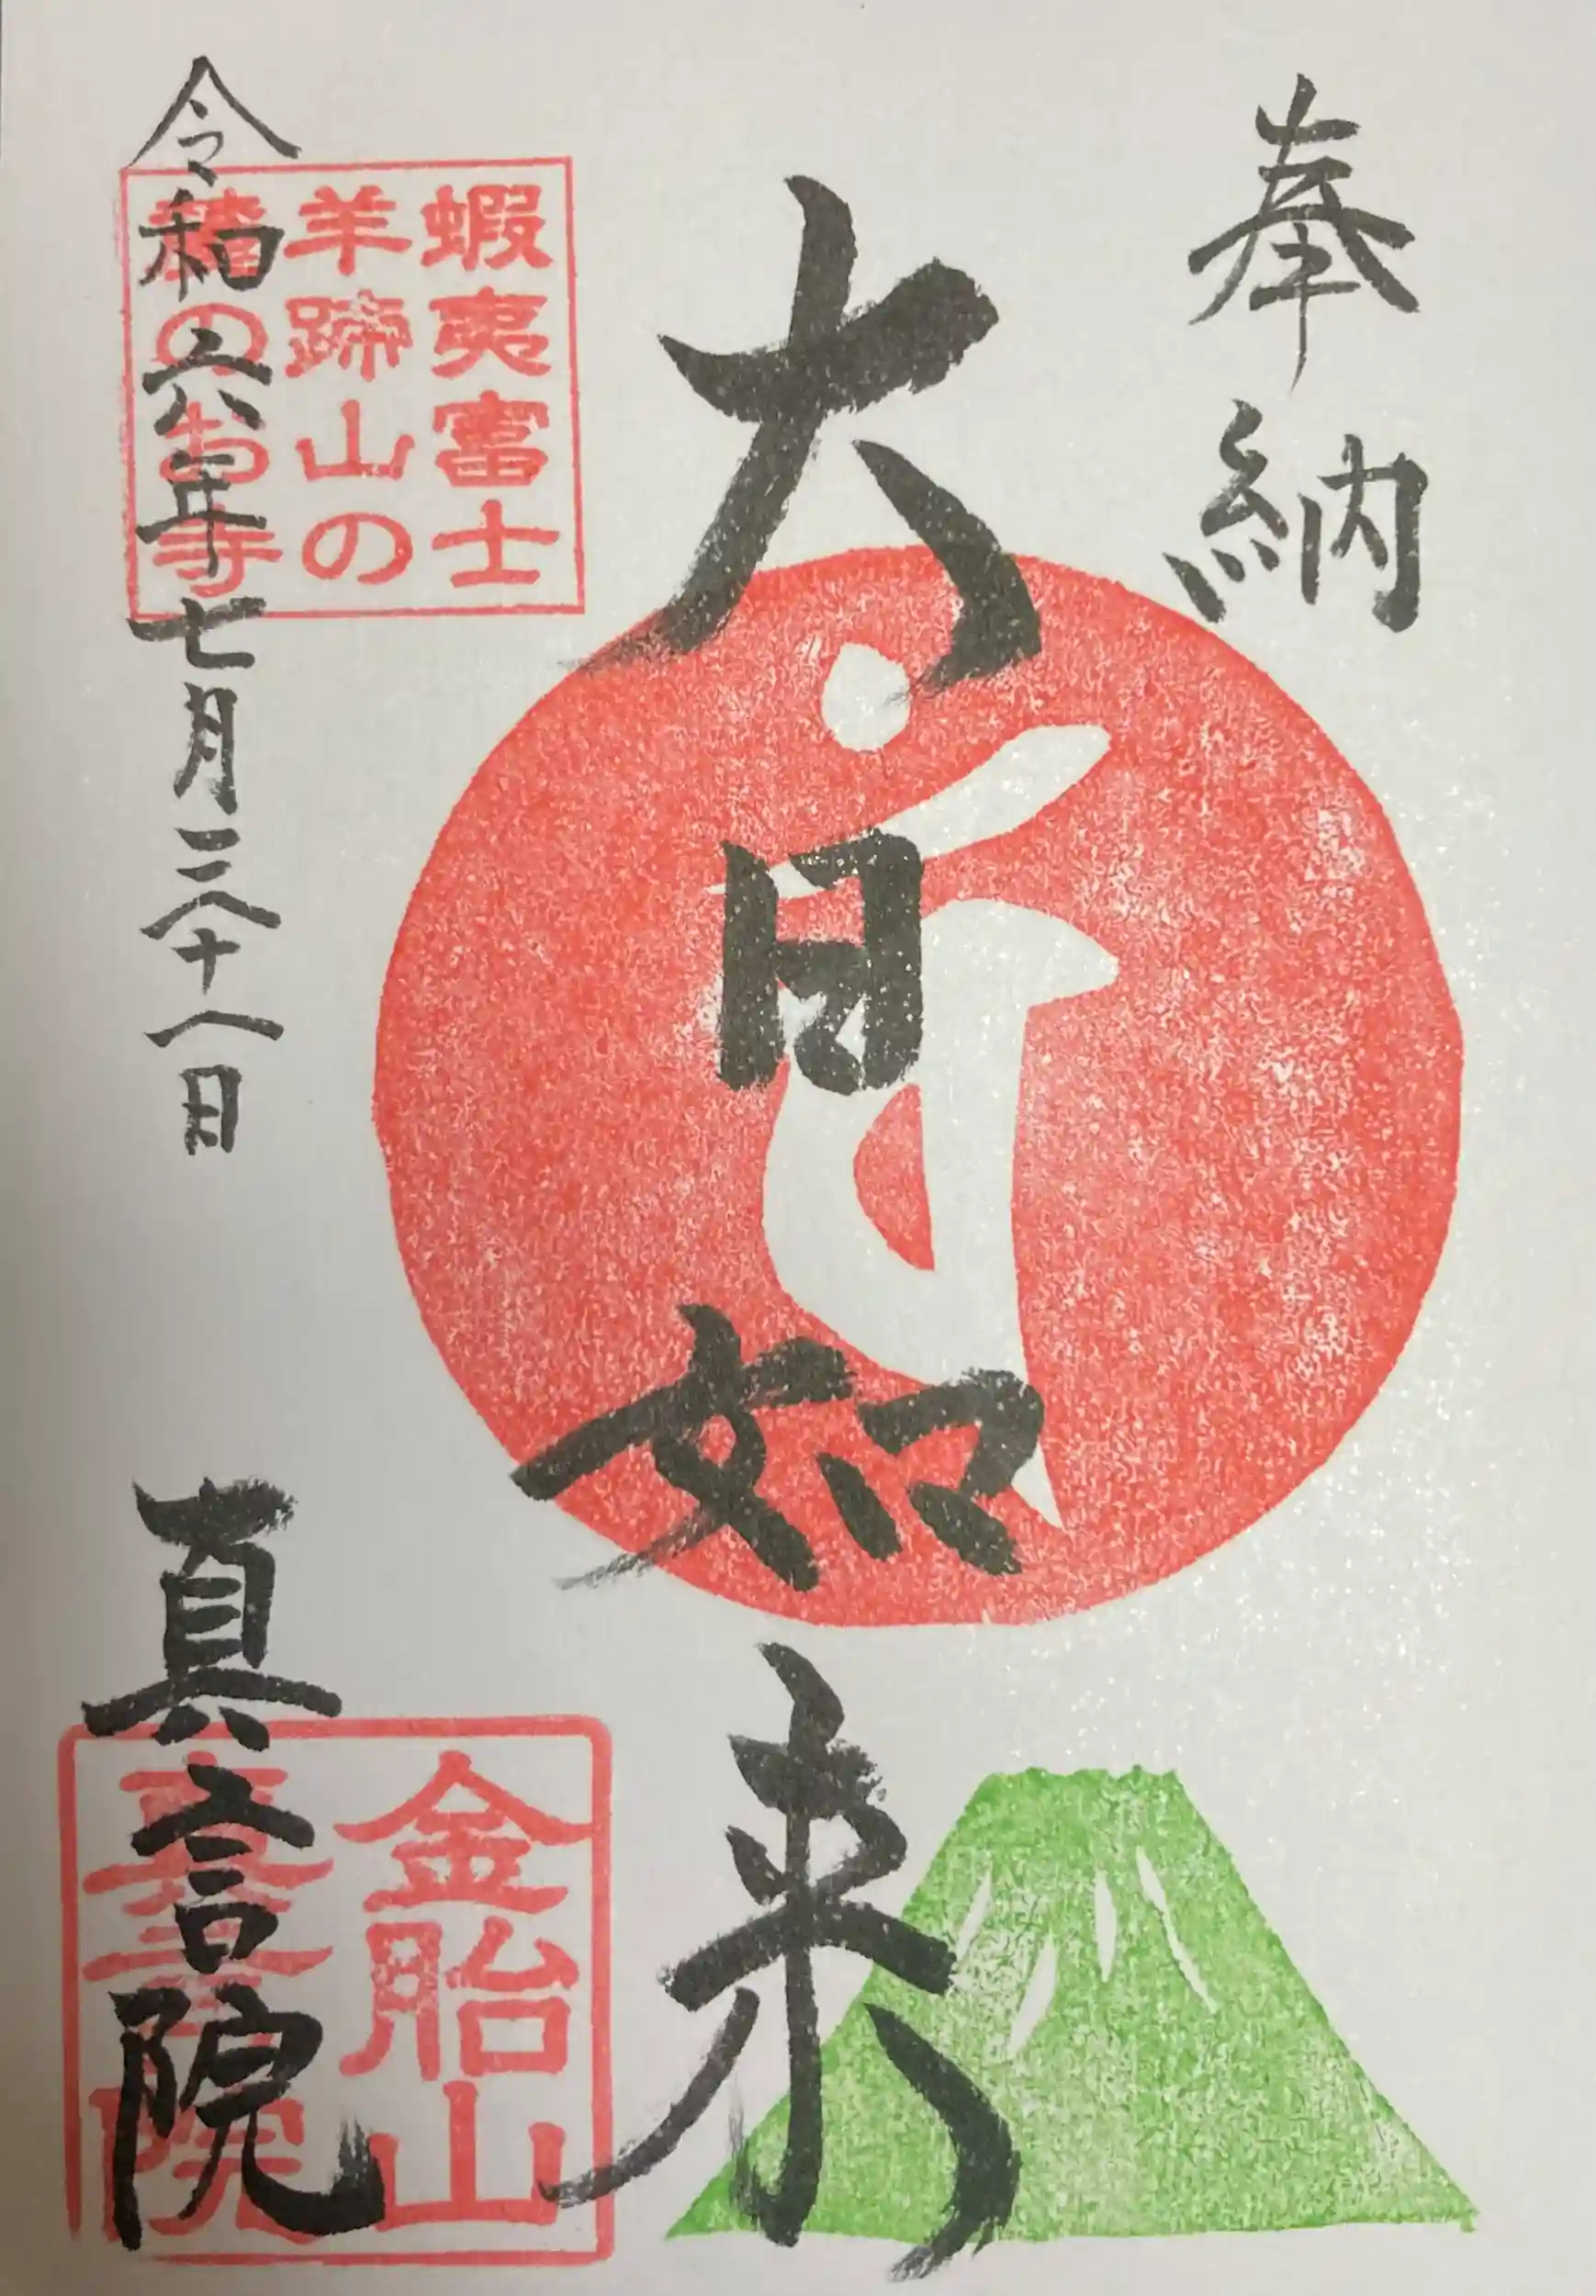 奉納
大日如来
蝦夷富士
羊蹄山の
麓のお寺
令和六年七月二十八日
金胎山
真言院
真言院